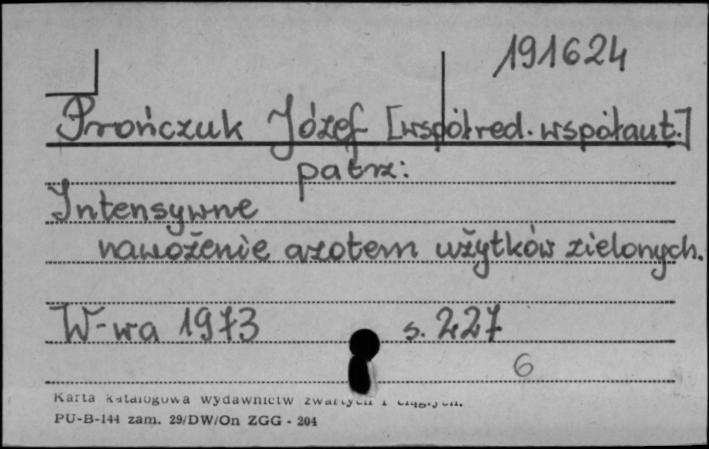 191624
Prończuk Józef [współred. współaut.]
patrz:
Intensywne
nawożenie azotem użytków zielonych.
W-wa 1973 s. 227
6
Karta katalogowa wydawnictw zwartych i ciągłych.
PU-B-144 zam. 29/DW/On ZGG - 204